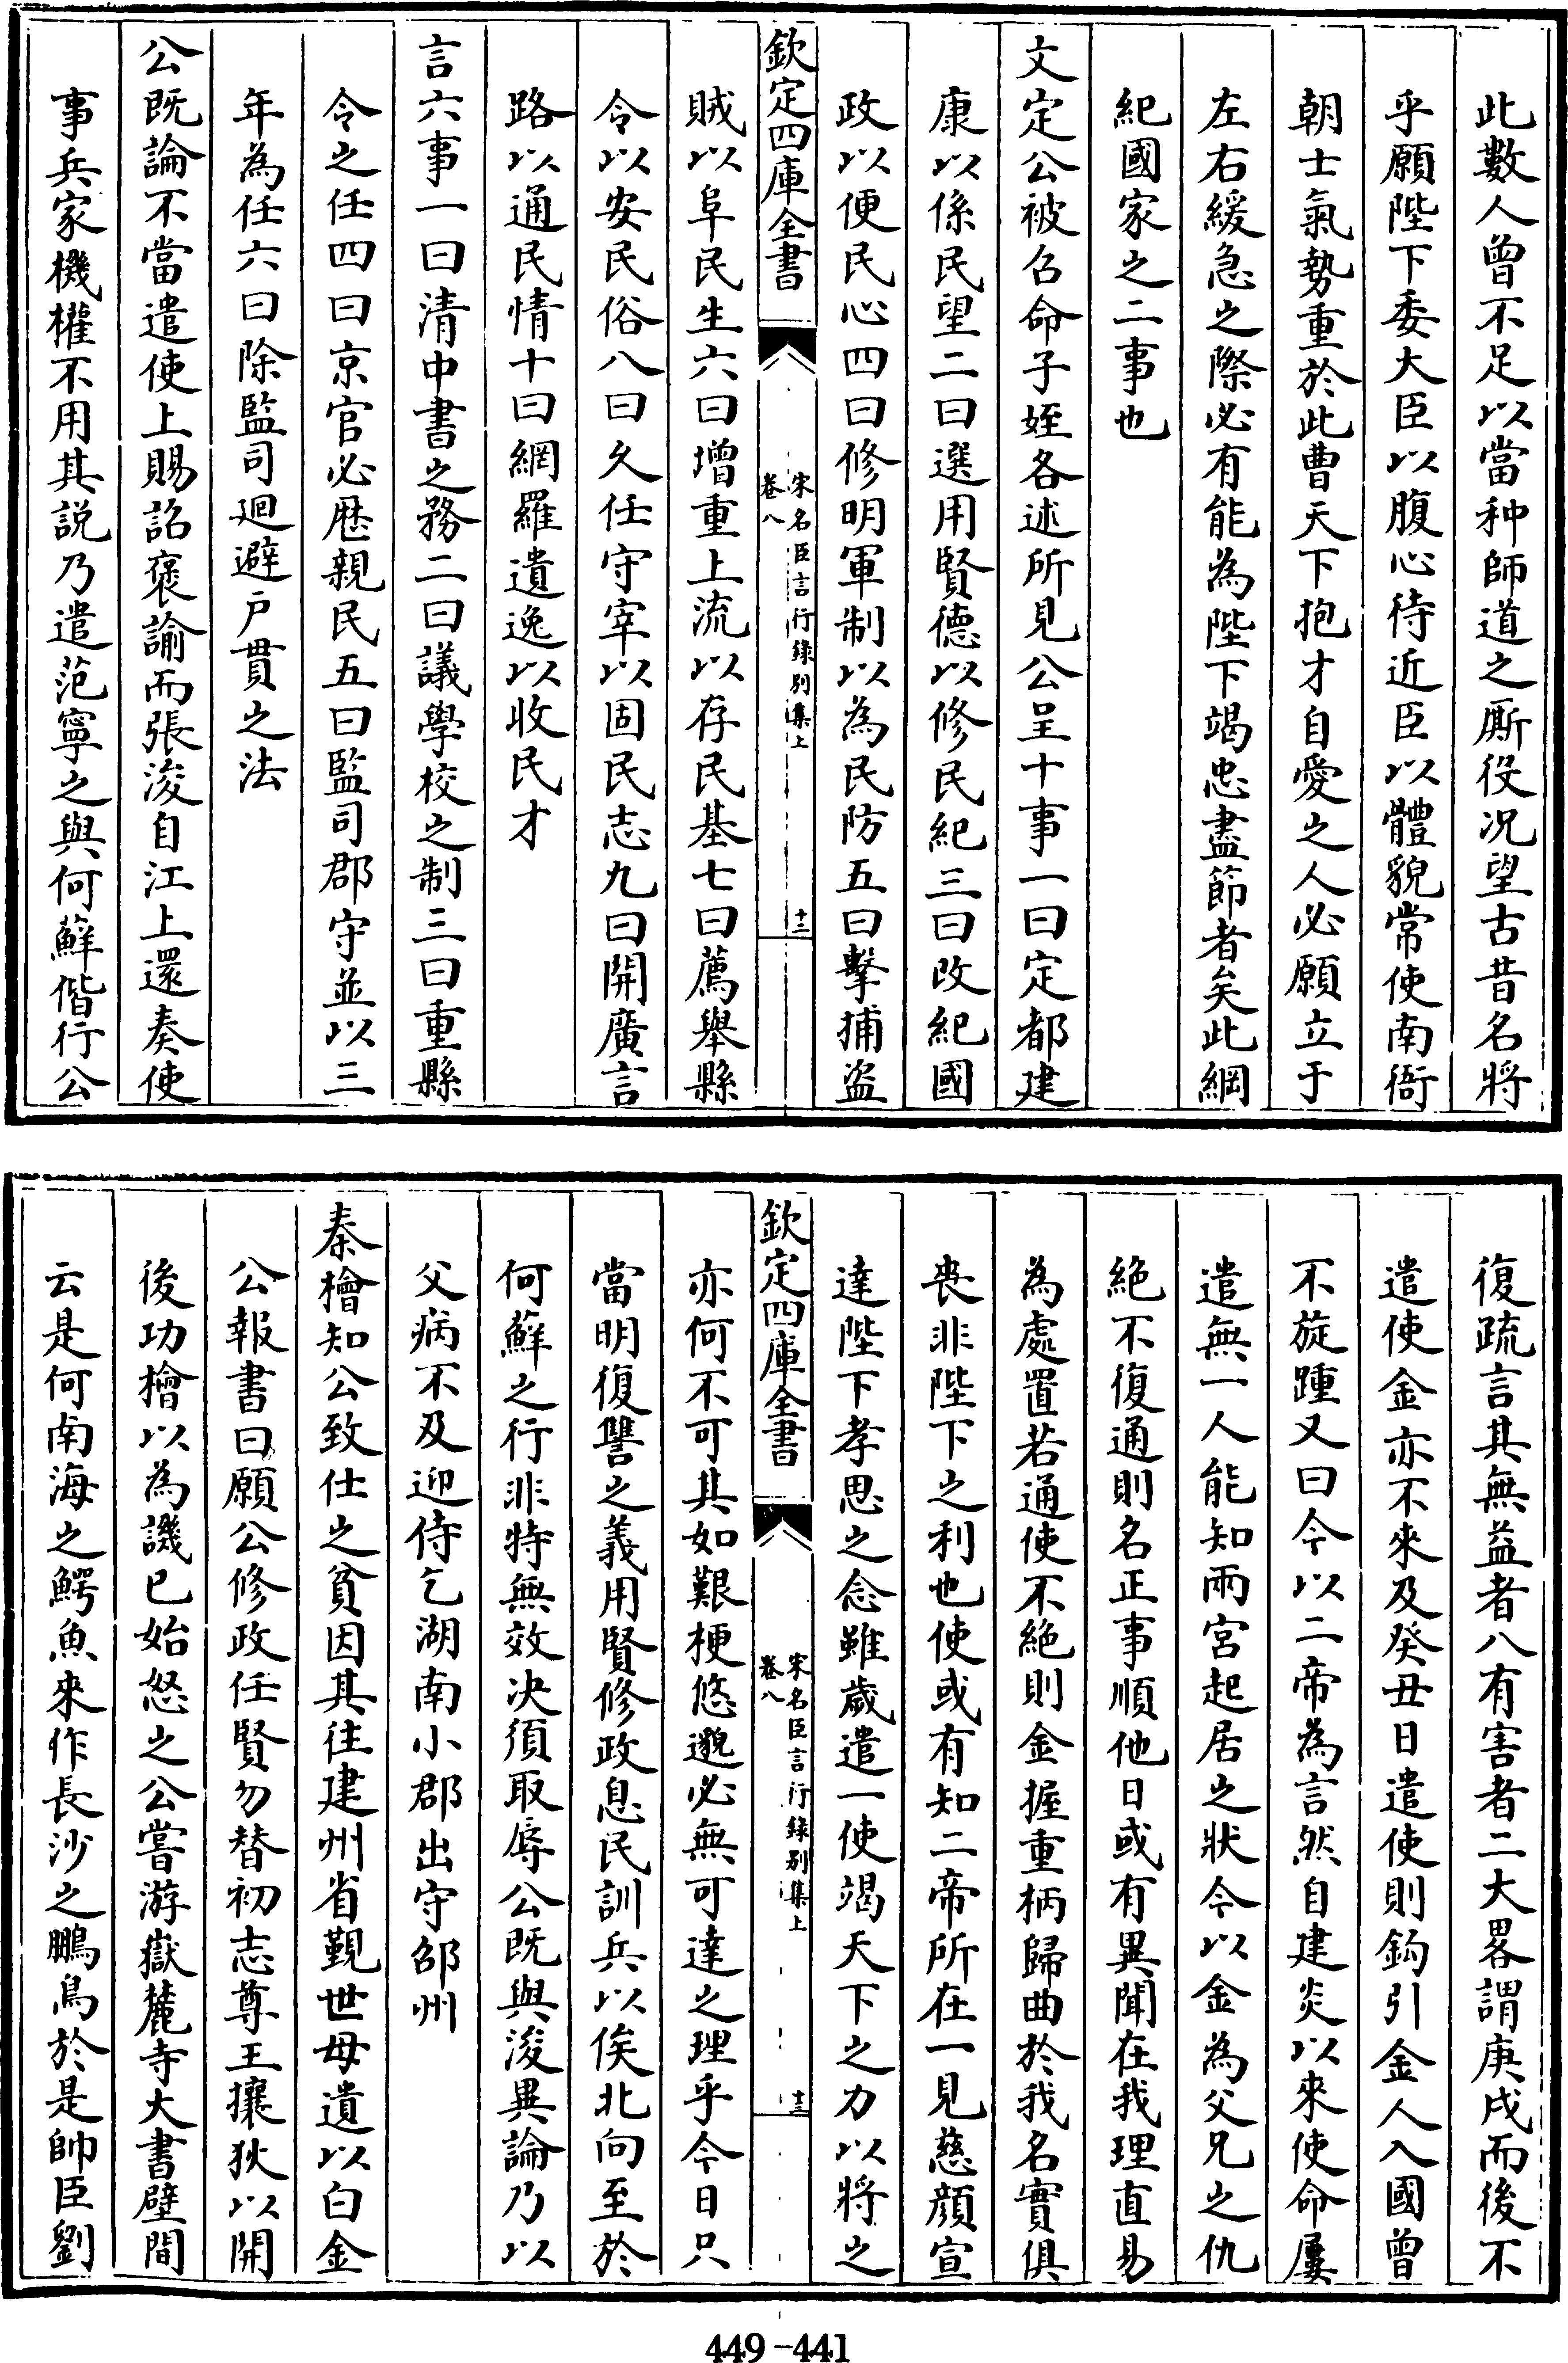 此數人曾不足以當种師道之厮役况望古昔名將
乎願陛下委大臣以腹心待近臣以體貌常使南衙
朝士氣勢重於此曹天下抱才自愛之人必願立于
左右緩急之際必有能為陛下竭忠盡節者矣此綱
紀國家之二事也
文定公被召命子姪各述所見公呈十事一曰定都建
康以係民望二曰選用賢德以修民紀三曰改紀國
政以便民心四曰修明軍制以為民防五曰擊捕盜
欽定四庫全書
宋名臣言行錄別集上
卷八
十二
賊以阜民生六曰增重上流以存民基七曰薦舉縣
令以安民俗八曰久任守宰以固民志九曰開廣言
路以通民情十曰網羅遺逸以收民才
言六事一曰清中書之務二曰議學校之制三曰重縣
令之任四曰京官必歴親民五曰監司郡守並以三
年為任六曰除監司廻避户貫之法
公既論不當遣使上賜詔褒諭而張浚自江上還奏使
事兵家機權不用其説乃遣范寧之與何蘚偕行公
復疏言其無益者八有害者二大畧謂庚戌而後不
遣使金亦不來及癸丑日遣使則鈎引金人入國曾
不旋踵又曰今以二帝為言然自建炎以來使命屢
遣無一人能知兩宮起居之狀今以金為父兄之仇
絶不復通則名正事順他日或有異聞在我理直易
為處置若通使不絶則金握重柄歸曲於我名實俱
喪非陛下之利也使或有知二帝所在一見慈顔宣
達陛下孝思之念雖歲遣一使竭天下之力以將之
欽定四庫全書
宋名臣言行錄別集上
卷八
十三
亦何不可其如艱梗悠邈必無可達之理乎今日只
當明復讐之義用賢修政息民訓兵以俟北向至於
何蘚之行非特無效决須取辱公既與浚異論乃以
父病不及迎侍乞湖南小郡出守邵州
秦檜知公致仕之貧因其往建州省覲世母遺以白金
公報書曰願公修政任賢勿替初志尊王攘狄以開
後功檜以為譏已始怒之公嘗游嶽麓寺大書壁間
云是何南海之鰐魚來作長沙之鵩鳥於是帥臣劉
449-441